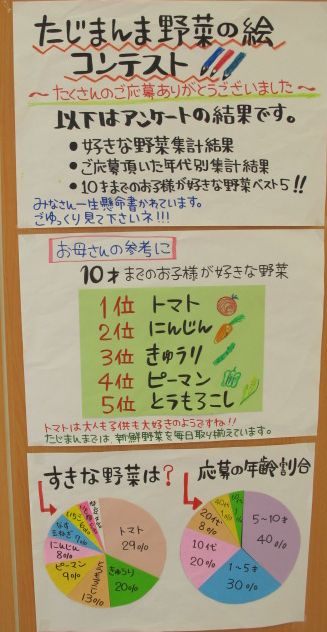 たじまんま野菜の絵
コンテスト
～たくさんのご応募ありがとうございました～
以下はアンケートの結果です。
●好きな野菜集計結果
●ご応募頂いた年代別集計結果
●10才までのお子様が好きな野菜ベスト5!!
みなさん一生懸命書かれています。
ごゆっくり見て下さいネ!!!
お母さんの参考に
10才までのお子様が好きな野菜
1位 トマト
2位 にんじん
3位 きゅうり
4位 ピーマン
5位 とうもろこし
トマトは大人も子供も大好きのようですね!!
たじまんまでは新鮮野菜を毎日取り揃えています。
すきな野菜は?
トマト
29%
きゅうり
20%
13%
ピーマン
9%
にんじん
8%
なす
玉ねぎ 7%
いちご
6%
応募の年齢割合
5～10才
40%
1～5才
30%
10代
20%
20代
8%
40代
1%